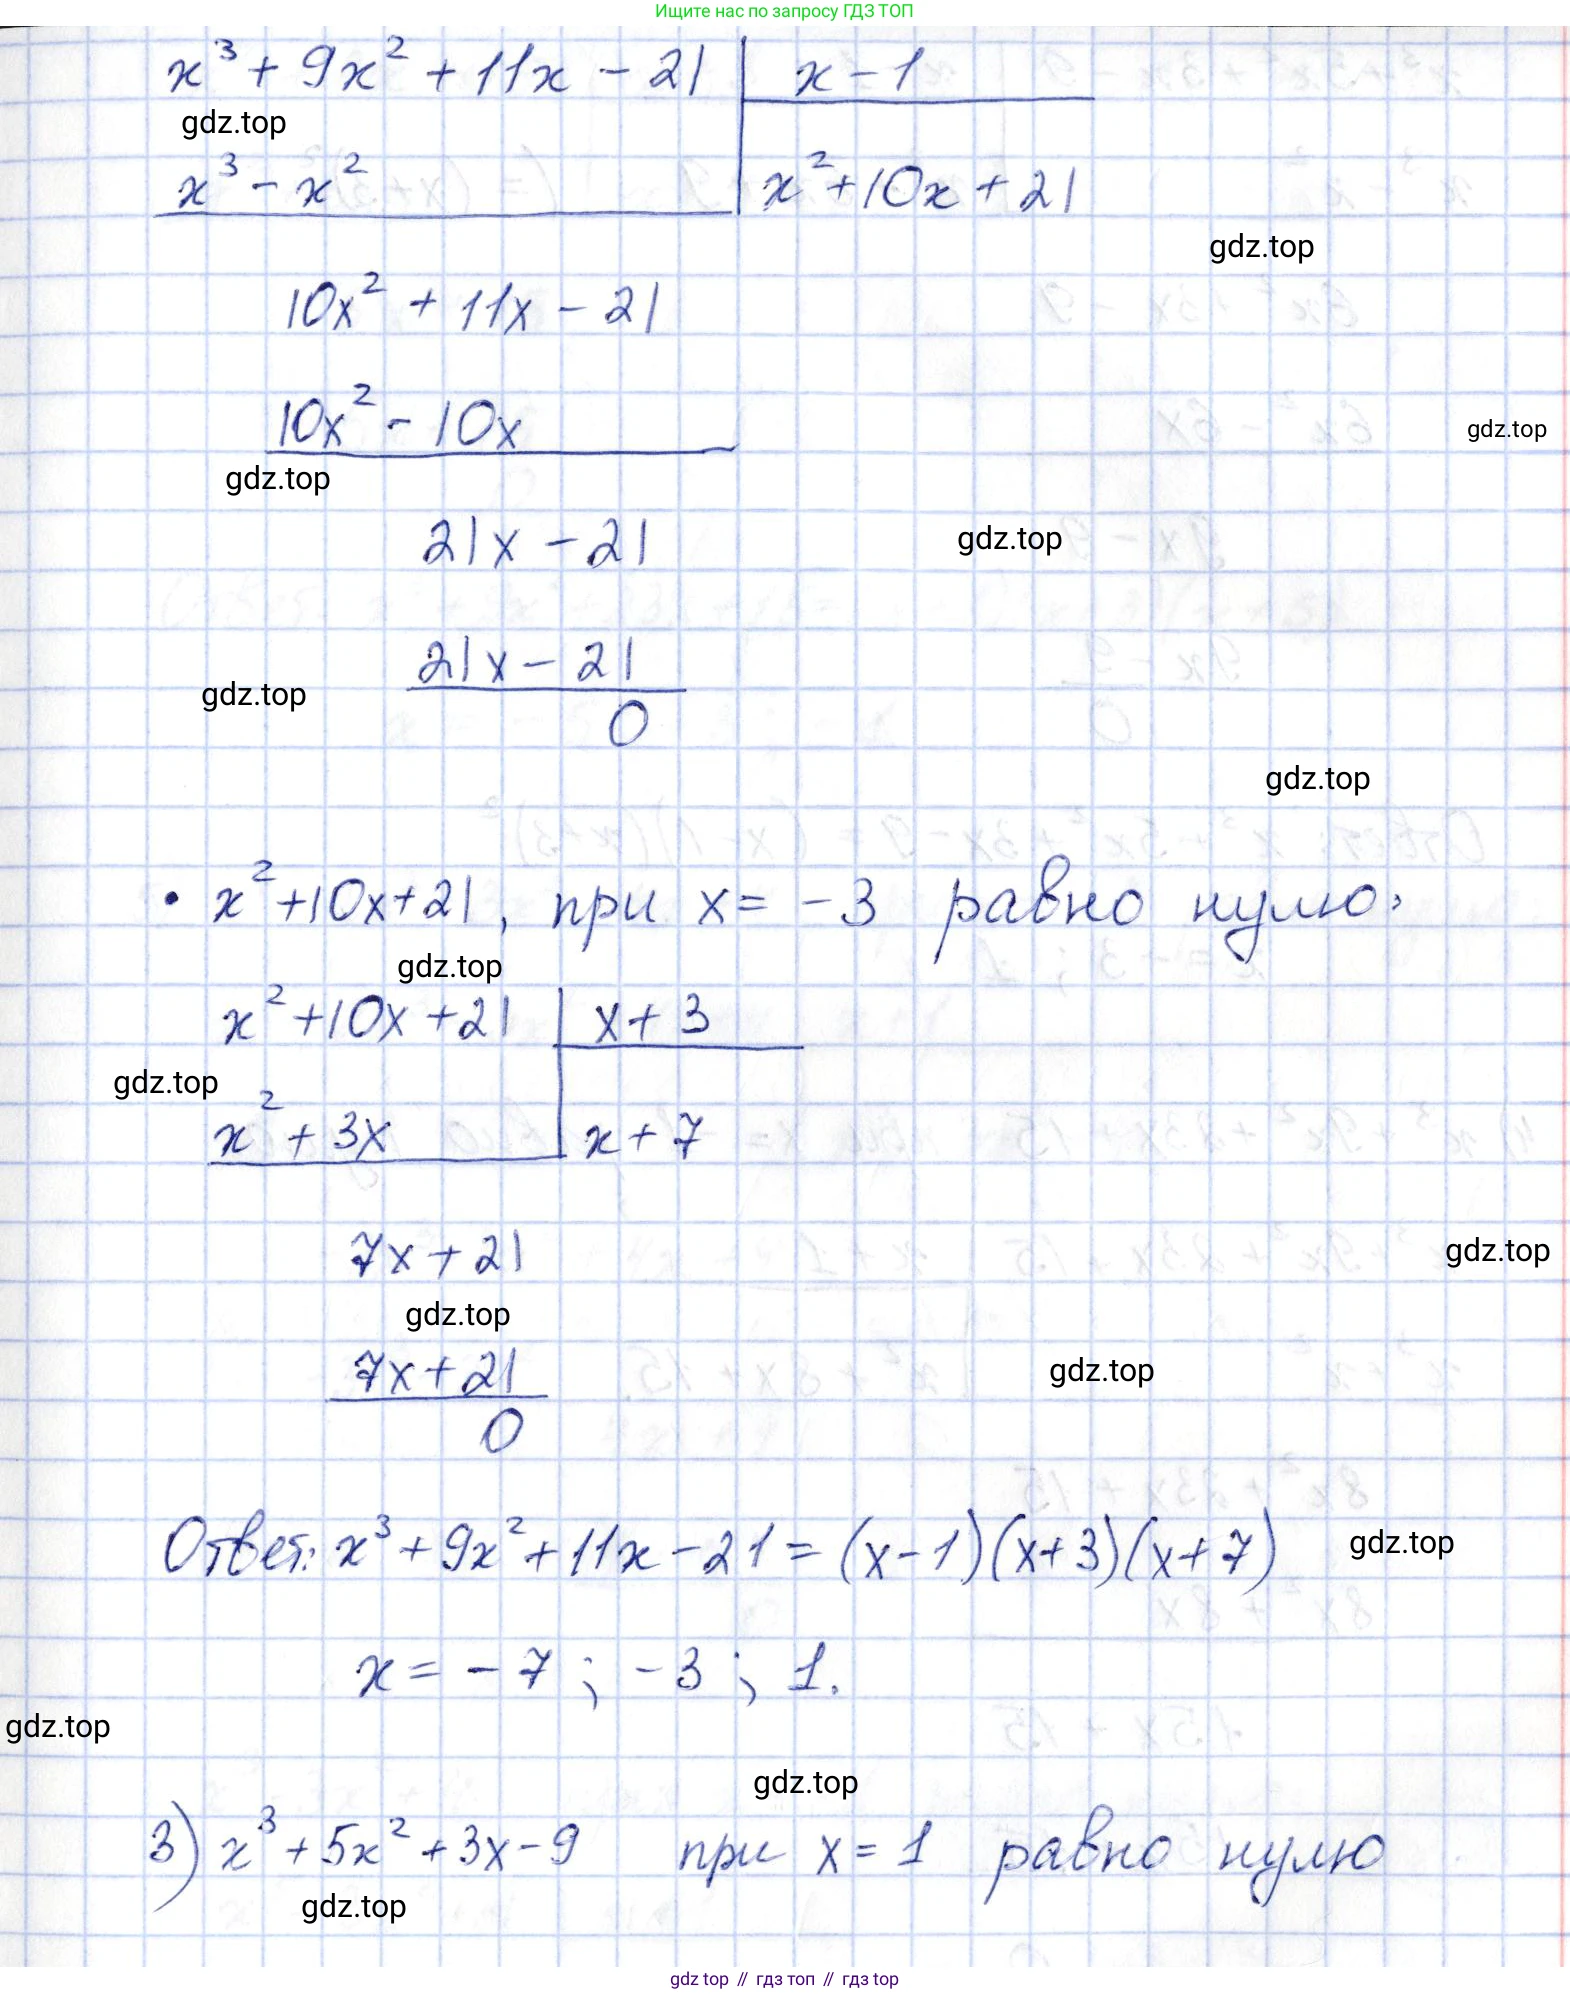 Ищите нас по запросу ГДЗ ТОП
x³ + 9x² + 11x - 21 | x - 1
gdz.top
x³ - x² | x² + 10x + 21
gdz.top
10x² + 11x - 21
10x² - 10x
gdz.top
gdz.top
21x - 21
gdz.top
21x - 21
gdz.top
0
gdz.top
• x² + 10x + 21, при x = -3 равно нулю,
gdz.top
x² + 10x + 21 | x + 3
gdz.top
x² + 3x | x + 7
7x + 21
gdz.top
gdz.top
7x + 21
gdz.top
0
Ответ: x³ + 9x² + 11x - 21 = (x - 1)(x + 3)(x + 7)
gdz.top
x = -7; -3; 1.
gdz.top
gdz.top
3) x³ + 5x² + 3x - 9 при x = 1 равно нулю
gdz.top
gdz top // гдз топ // гдз top